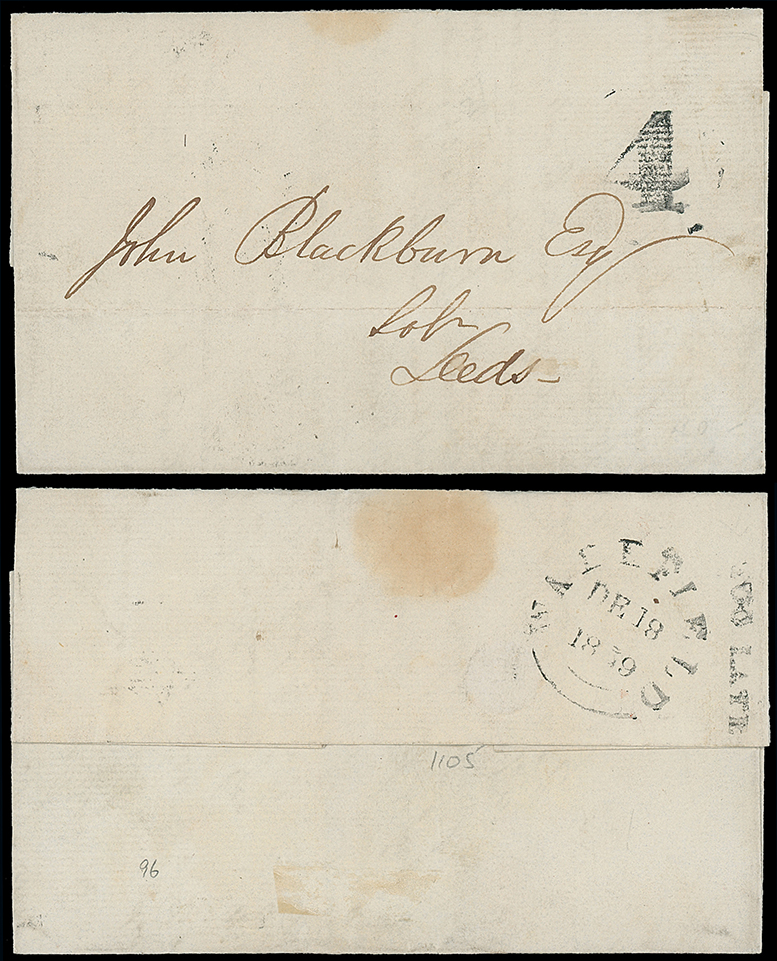 4
John Blackburn Esq
Solr
Leeds
WAKEFIELD
DE 18
1839
TOO LATE
1105
96